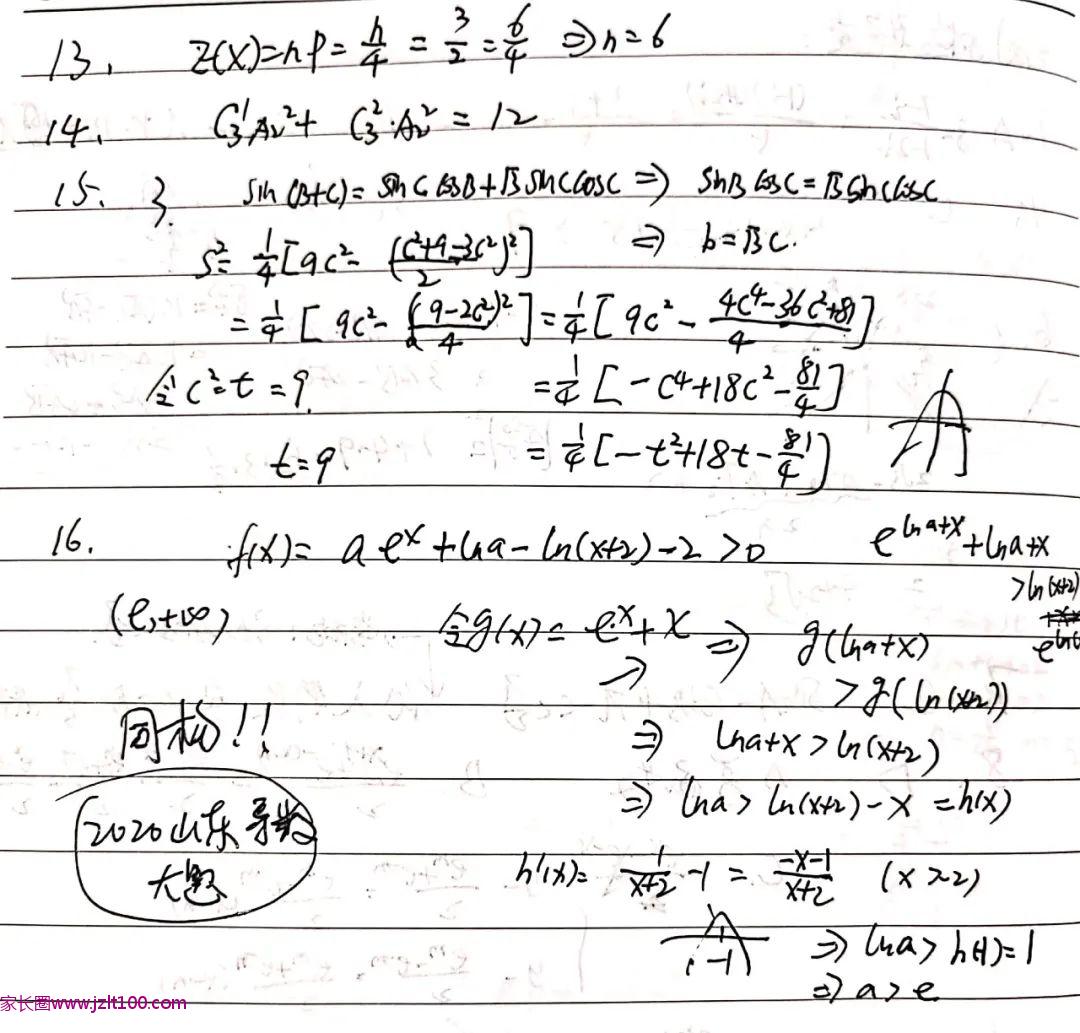 13. E(X)=np=n/4=3/2=6/4 ⇒n=6
14. C₃¹A₂²+ C₃²·A₂²=12
15. 3. sin(B+C)=sinCcosB+√3sinCcosC⇒ sinBcosC=√3sinCcosC
S²=1/4[9c²-((c²+9-3c²)/2)²] ⇒ b=√3c.
=1/4[9c²-(9-2c²)²/4]=1/4[9c²-(4c⁴-36c²+81)/4]
令c²=t=9. =1/4[-c⁴+18c²-81/4]
t=9 =1/4[-t²+18t-81/4]
16. f(x)=ae^x+lna-ln(x+2)-2>0 e^(lna+x)+lna+x
>ln(x+2)
(e,+∞) 令g(x)=e^x+x ⇒ g(lna+x)
>g(ln(x+2))
同构!! ⇒ lna+x>ln(x+2)
⇒ lna>ln(x+2)-x=h(x)
2020山东导数
大题
h'(x)=1/(x+2)-1=(-x-1)/(x+2) (x>2)
-1 ⇒ lna>h(-1)=1
⇒a>e
家长圈www.jzlt100.com